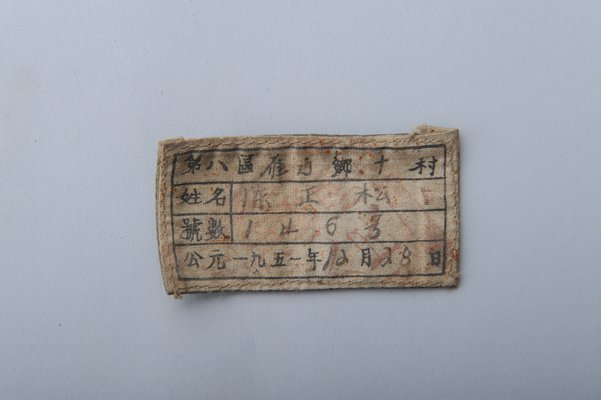 第八區雁方鄉十村
姓名 陈正松
號數 146号
公元一九五一年12月28日